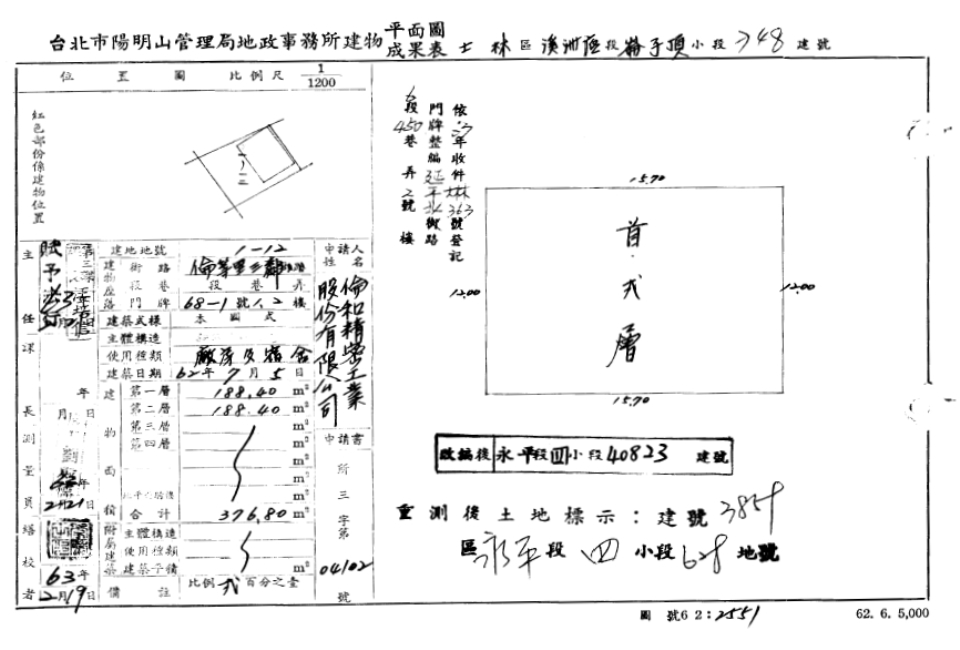 台北市陽明山管理局地政事務所建物平面圖成果表 士林區溪洲底段崙子頂小段748建號
位置圖 比例尺 1/1200
紅色部份係建物位置
一|一二
依57年收件林363號登記
門牌整編延平北街路
段450巷弄2號樓
15.70
12.00
首.弍層
12.00
15.70
改編後 永平段四小段40823 建號
重測後土地標示：建號3854
區永平段四小段628地號
申請人姓名
倫和精密工業股份有限公司
申請書
所三字第
04102
號
建地地號 1-12
建物座落
街路 倫等里三鄰
段巷 段巷弄
門牌 68-1號1,2樓
建築式樣 本國式
主體構造
使用種類 廠房及宿舍
建築日期 62年7月5日
建物面積
第一層 188.40 m²
第二層 188.40 m²
第三層 m²
第四層 m²
m²
m²
m²
合計 376.80 m²
附屬建築
主體構造
使用種類
建築平積 m²
備註 比例弍百分之壹
主任
課長
測量員
繕校者
年
月日
2月21日
63年
2月19日
圖號62:2551
62. 6. 5,000